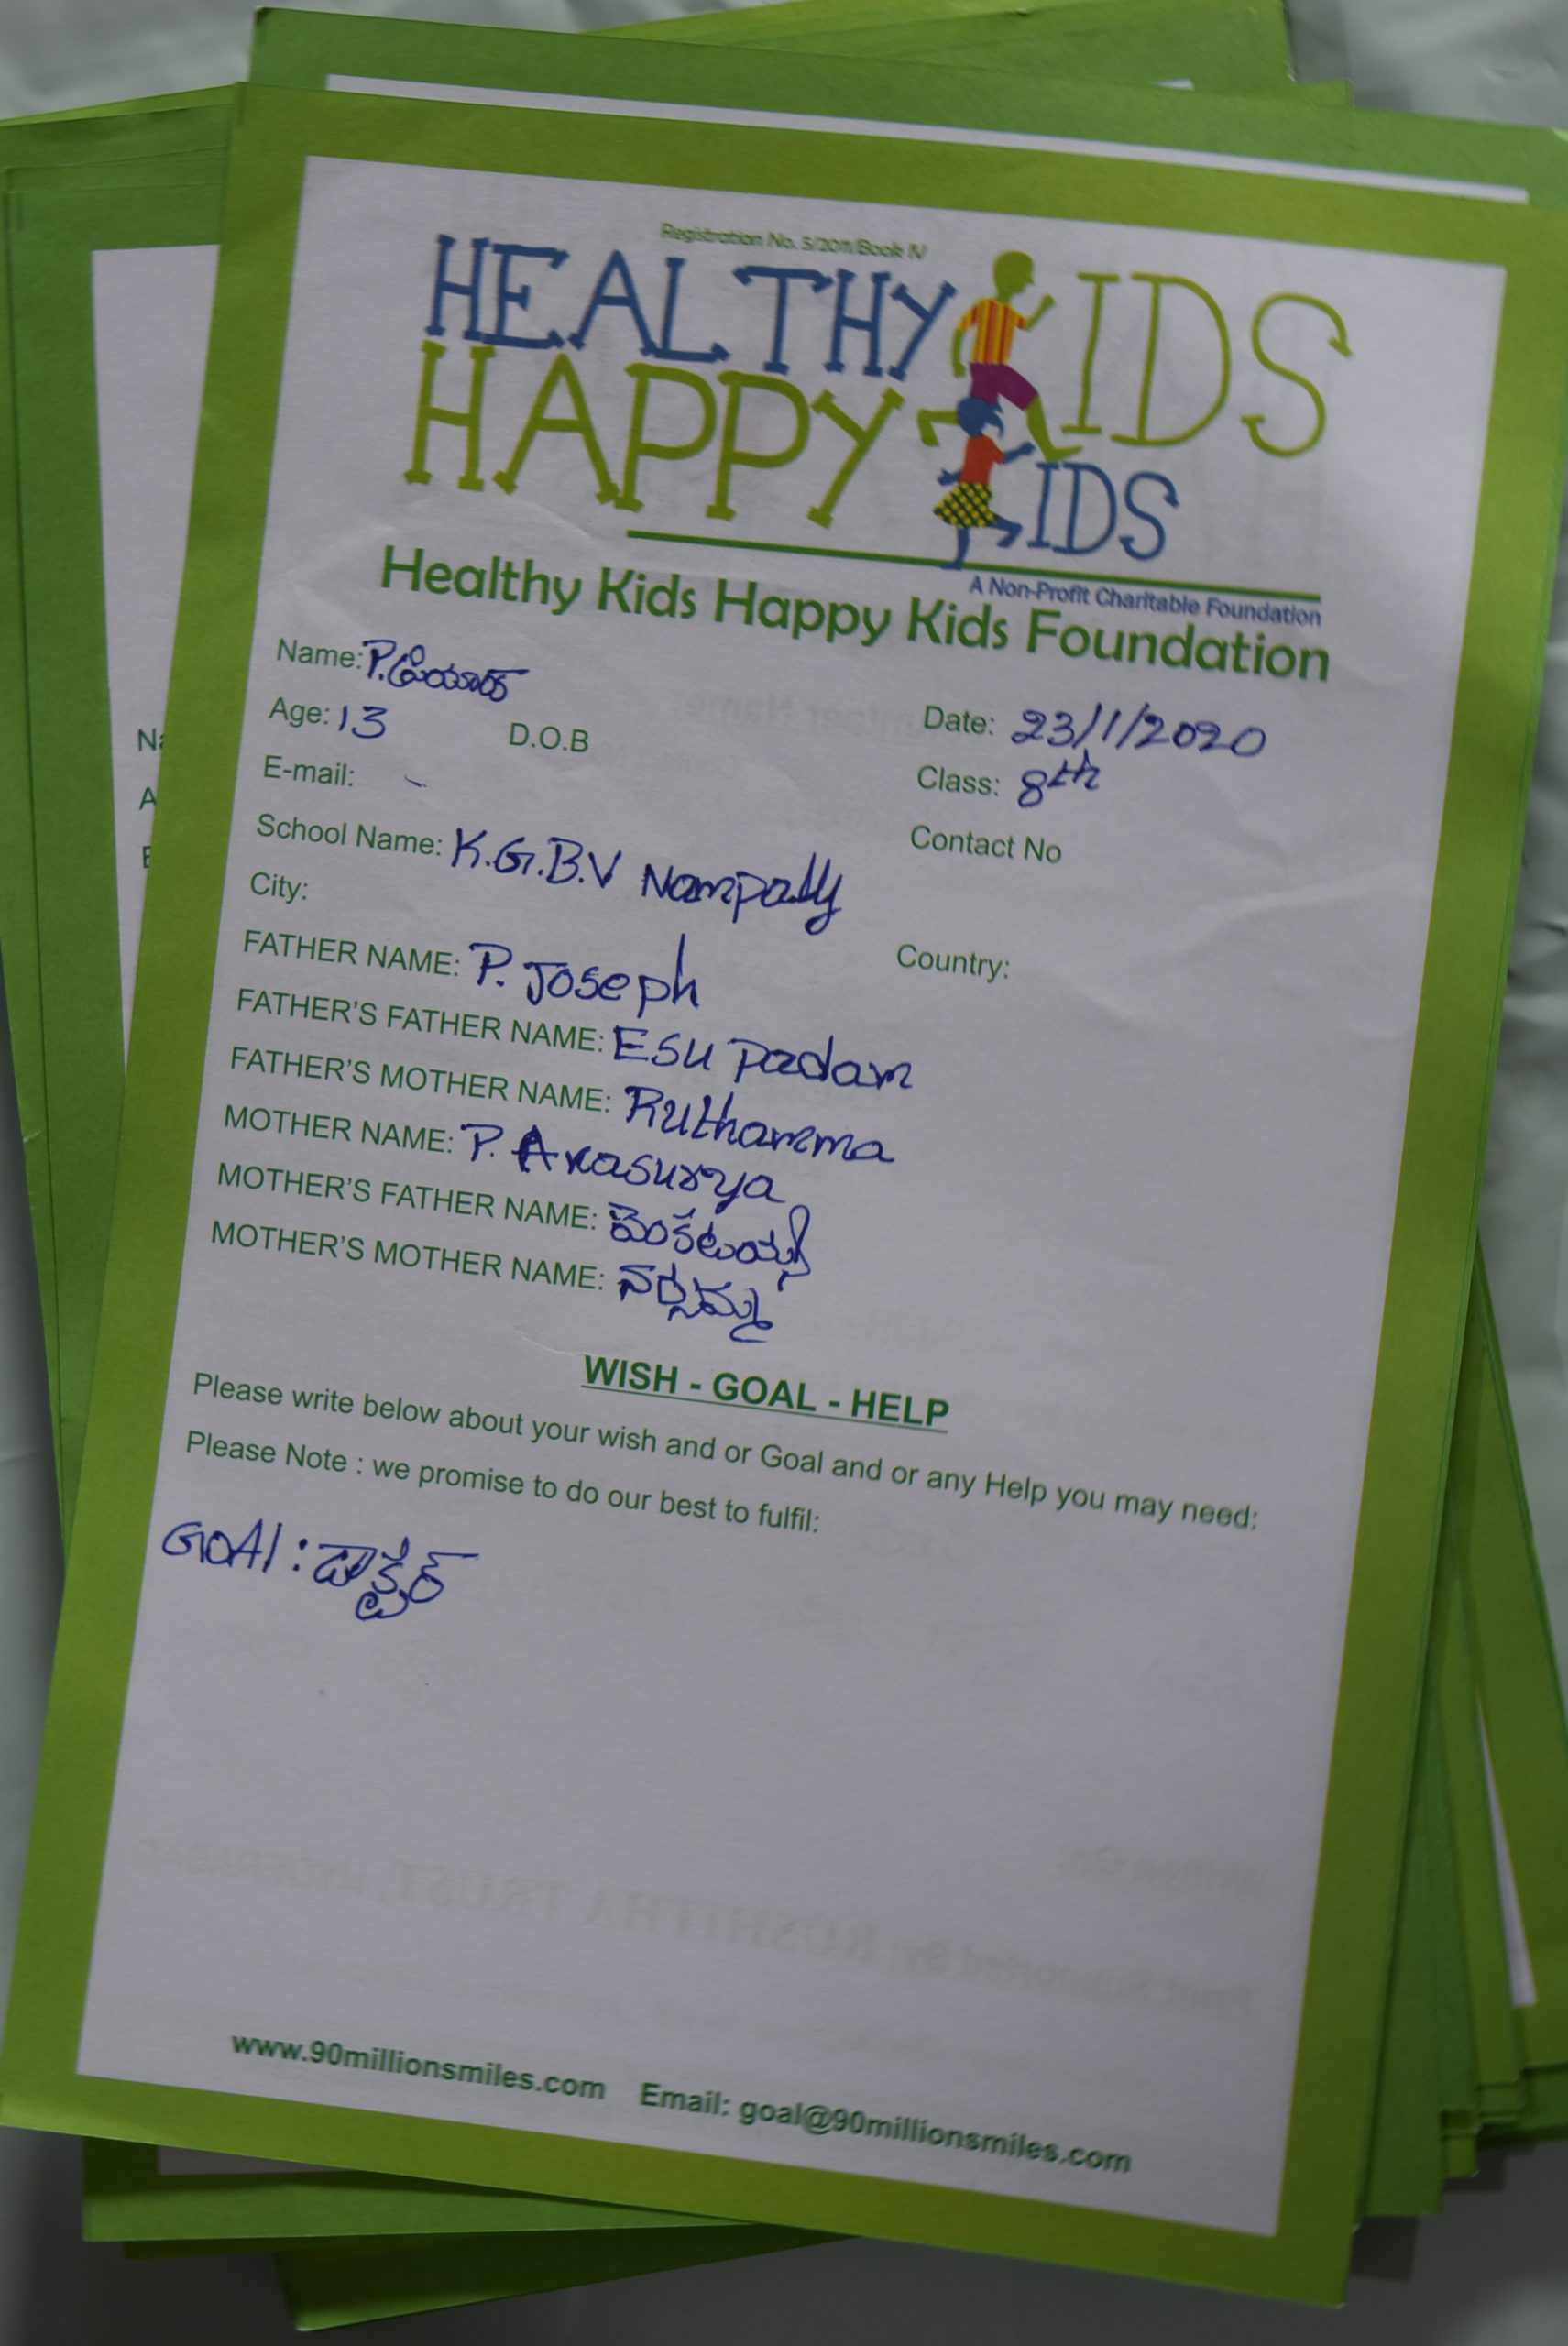 Registration No. 5/2011/Book IV
HEALTHY KIDS
HAPPY KIDS
A Non-Profit Charitable Foundation
Healthy Kids Happy Kids Foundation
Name: P.
Date: 23/1/2020
Age: 13 D.O.B
Class: 8th
E-mail: -
Contact No
School Name: K.G.B.V Nampally
City:
Country:
FATHER NAME: P. Joseph
FATHER'S FATHER NAME: Esu Padam
FATHER'S MOTHER NAME: Ruthamma
MOTHER NAME: P. Anasurya
MOTHER'S FATHER NAME: వెంకటయ్య
MOTHER'S MOTHER NAME: నర్సమ్మ
WISH - GOAL - HELP
Please write below about your wish and or Goal and or any Help you may need:
Please Note : we promise to do our best to fulfil:
GOAl : డాక్టర్
www.90millionsmiles.com Email: goal@90millionsmiles.com